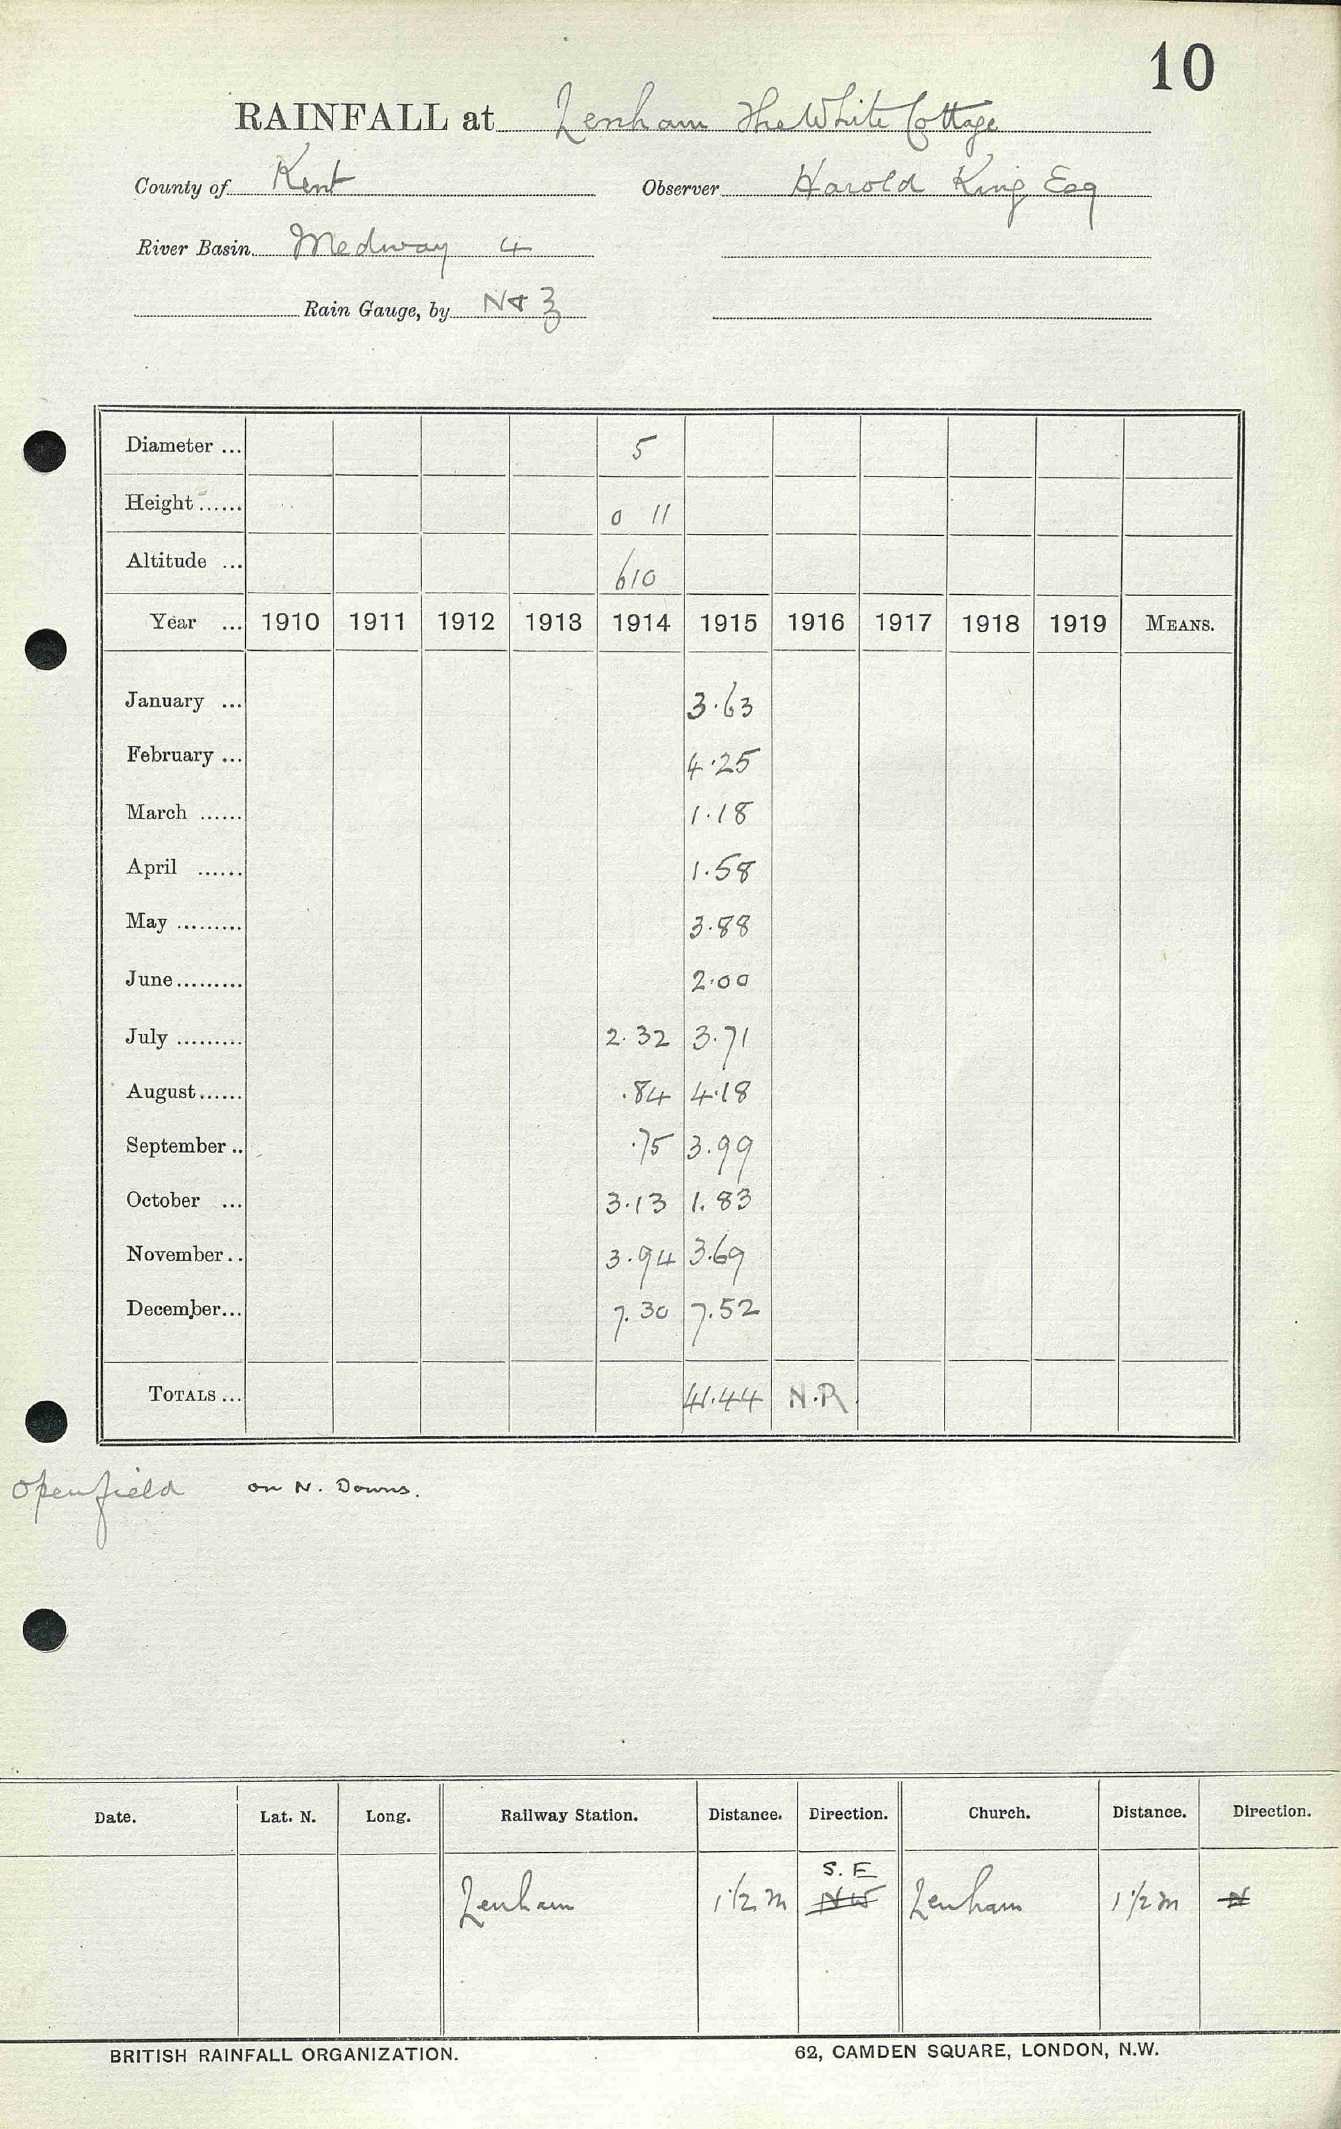 10
RAINFALL at Lenham The White Cottage
County of Kent Observer Harold King Esq
River Basin Medway 4
Rain Gauge, by N & Z
Diameter ... 5
Height ...... 0 11
Altitude ... 610
Year ... 1910 1911 1912 1913 1914 1915 1916 1917 1918 1919 MEANS.
January ... 3.63
February ... 4.25
March ...... 1.18
April ...... 1.58
May ......... 3.88
June ......... 2.00
July ......... 2.32 3.71
August ...... .84 4.18
September .. .75 3.99
October ... 3.13 1.83
November .. 3.94 3.69
December ... 7.30 7.52
TOTALS ... 41.44 N.R.
Open field on N. Downs.
Date. Lat. N. Long. Railway Station. Distance. Direction. Church. Distance. Direction.
S. E
Lenham 1 1/2 m NW Lenham 1 1/2 m N
BRITISH RAINFALL ORGANIZATION. 62, CAMDEN SQUARE, LONDON, N.W.